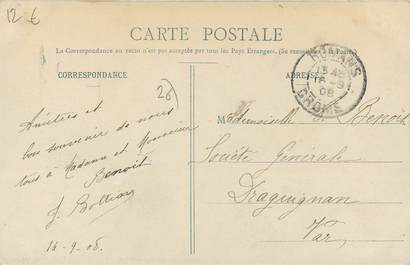 12 €
CARTE POSTALE
La Correspondance au recto n'est pas acceptée par tous les Pays Etrangers. (Se renseigner à la Poste)
CORRESPONDANCE
ADRESSE
ROMANS
16-9
08
DROME
26
Amitiés et
bon souvenir de nous
tous à Madame et Monsieur
Benoit
J.
16-9-08.
Mademoiselle Benoit
Société Générale
Draguignan
Var